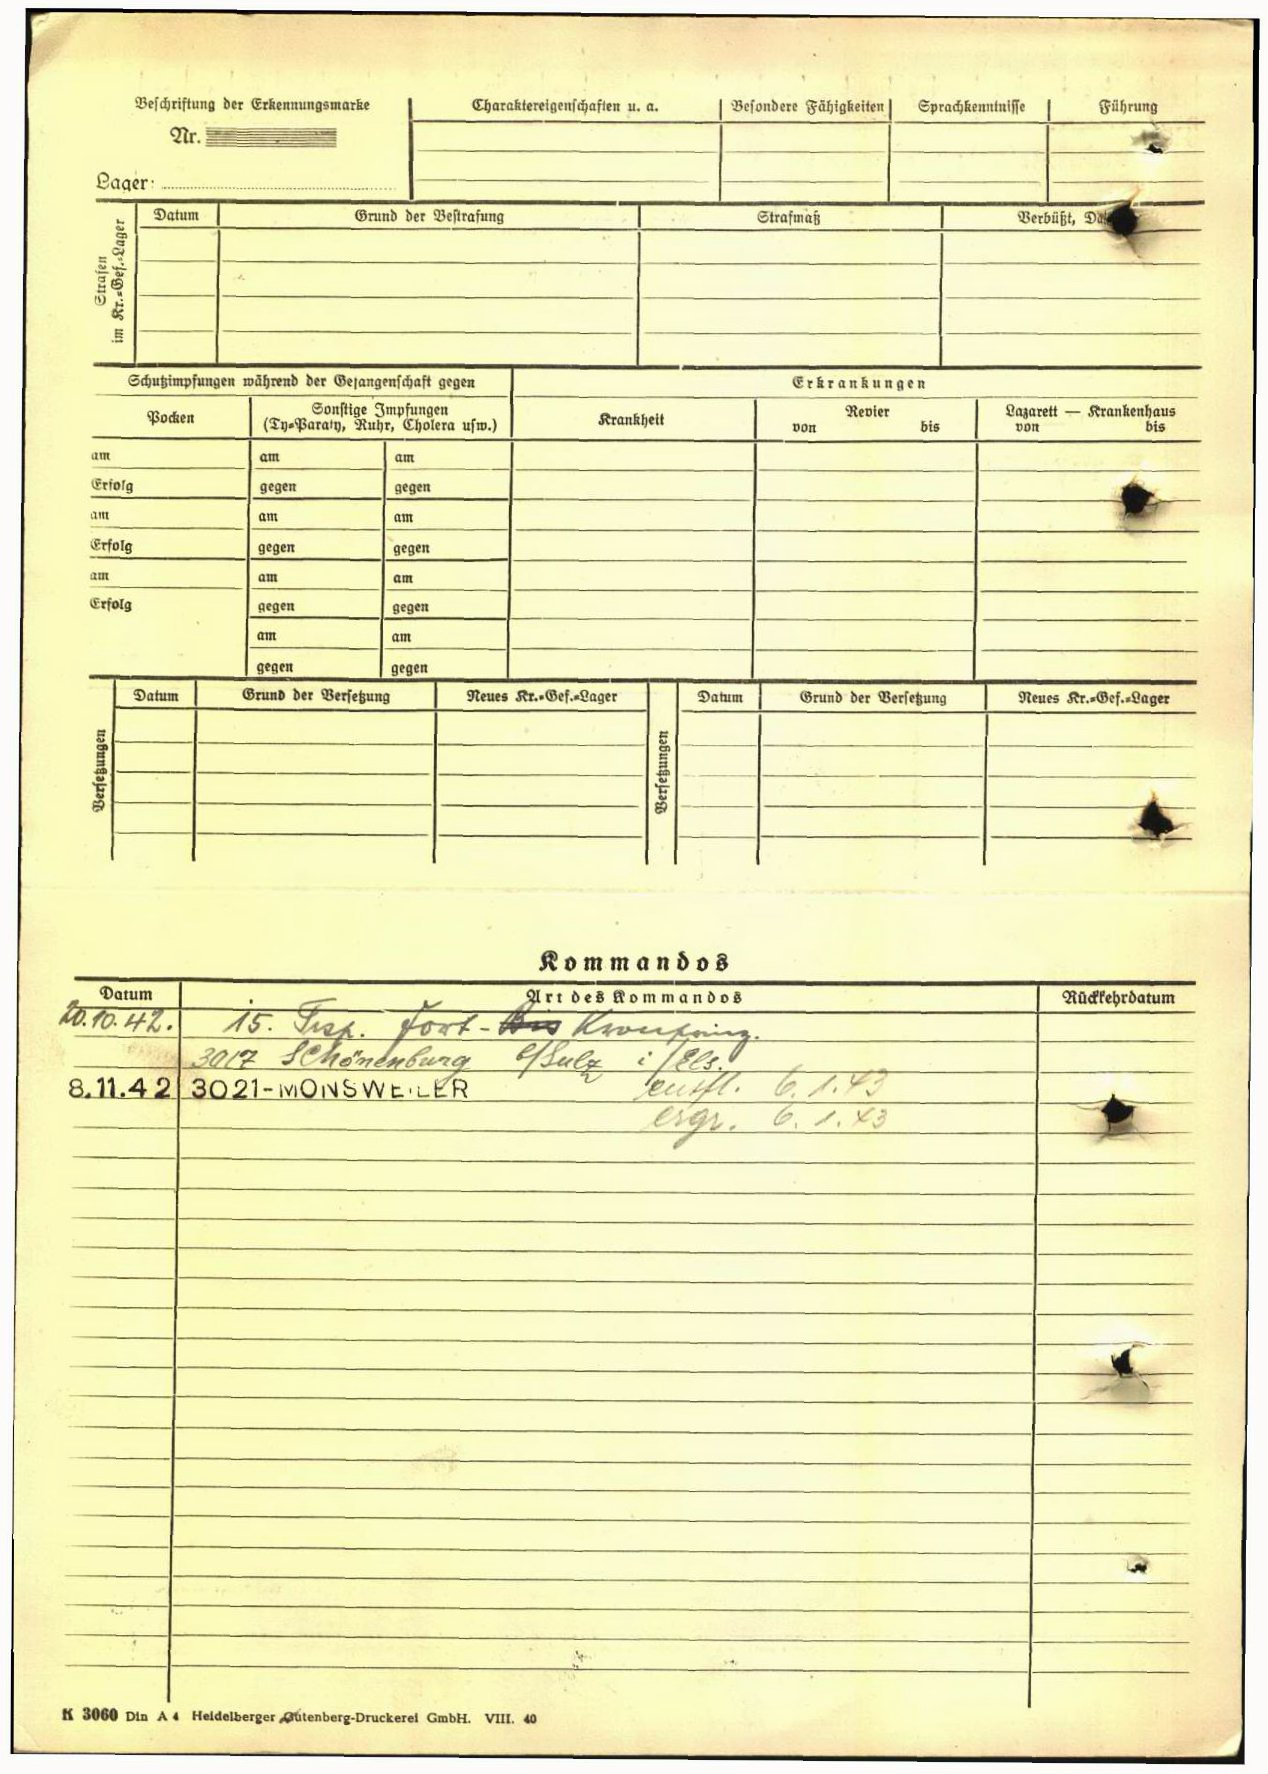 Beschriftung der Erkennungsmarke
Nr.
Lager:
Charaktereigenschaften u. a.
Besondere Fähigkeiten
Sprachkenntnisse
Führung
Strafen
im Kr.=Gef.=Lager
Datum
Grund der Bestrafung
Strafmaß
Verbüßt,
Schutzimpfungen während der Gefangenschaft gegen
Erkrankungen
Pocken
Sonstige Impfungen
(Ty=Paraty, Ruhr, Cholera usw.)
Krankheit
Revier
von bis
Lazarett — Krankenhaus
von bis
am am am
Erfolg gegen gegen
am am am
Erfolg gegen gegen
am am am
Erfolg gegen gegen
am am
gegen gegen
Versetzungen
Datum Grund der Versetzung Neues Kr.=Gef.=Lager
Versetzungen
Datum Grund der Versetzung Neues Kr.=Gef.=Lager
Kommandos
Datum Art des Kommandos Rückkehrdatum
20.10.42. 15. Trsp. Fort - Kronprinz.
3017 Schönenburg b/Sulz i/Els.
8.11.42 3021-MONSWEILER entfl. 6.1.43
ergr. 6.1.43
K 3060 Din A 4 Heidelberger Gutenberg-Druckerei GmbH. VIII. 40